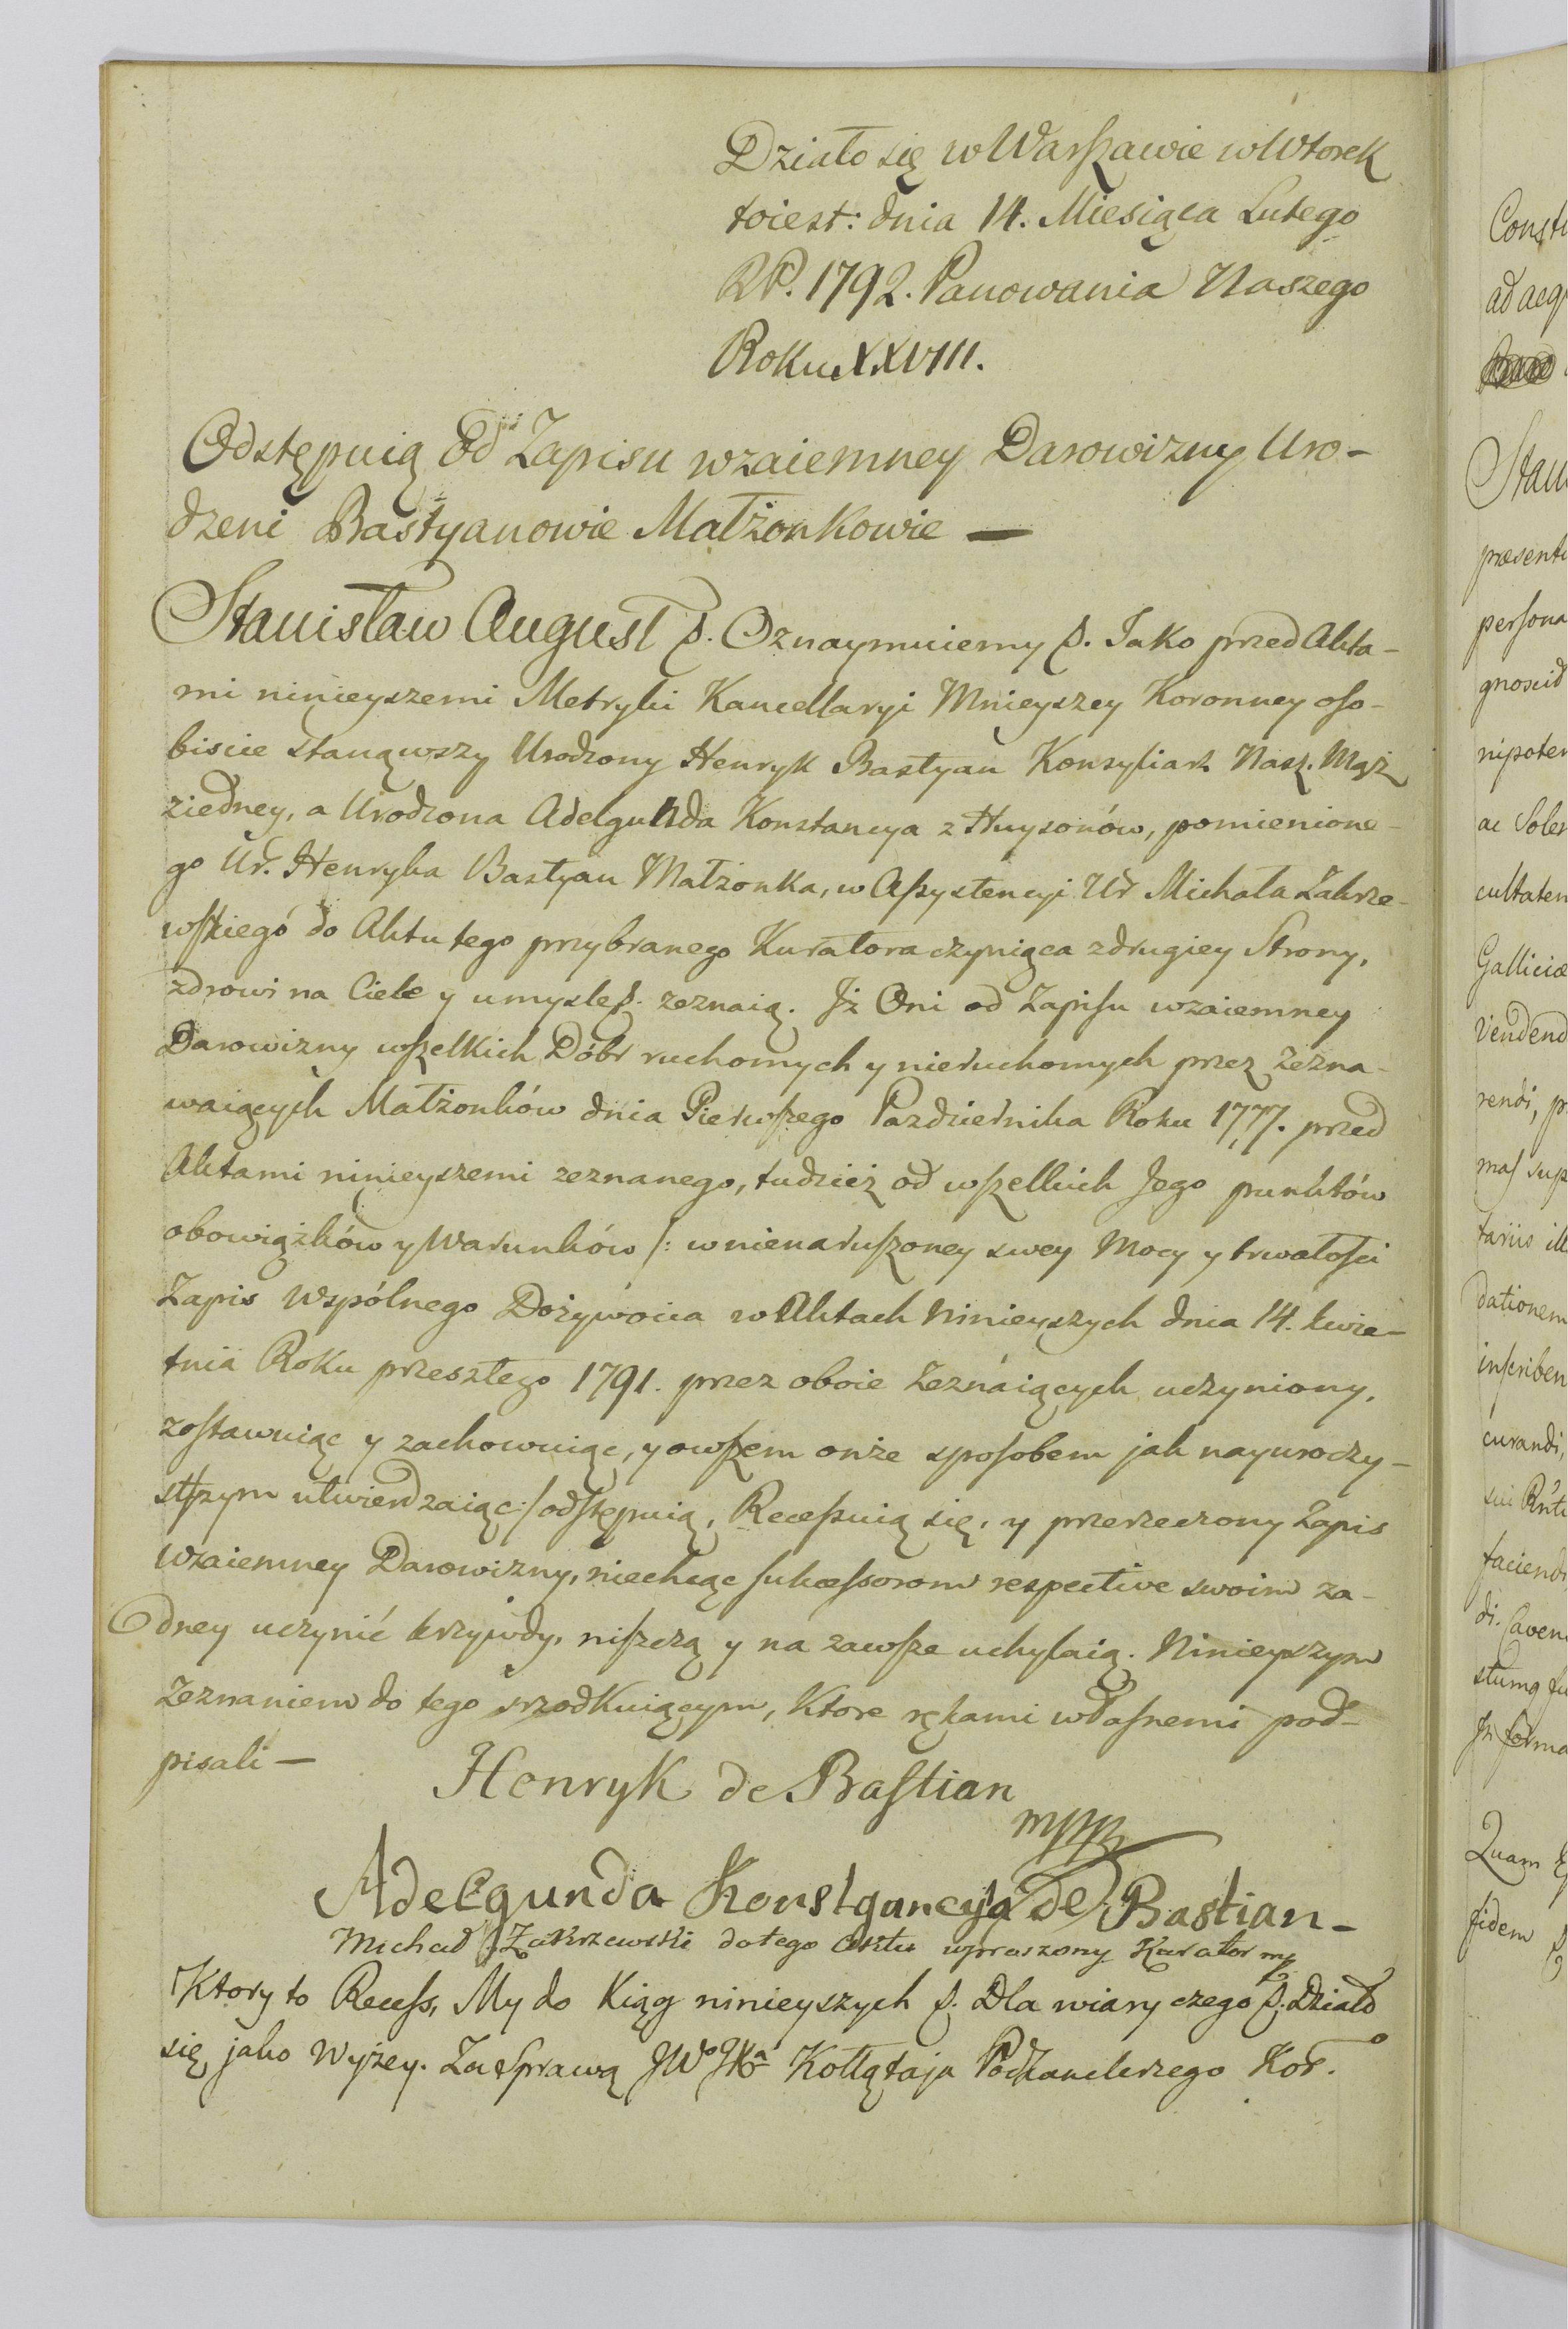 Działo się w Warszawie w Wtorek
toiest: dnia 14. Miesiąca Lutego
RP. 1792. Panowania Naszego
Roku XXVIII.
Odstępuią Od Zapisu wzaiemney Darowizny Uro-
dzeni Bastyanowie Małżonkowie —
Stanisław August p. Oznaymuiemy p. Jako przed Akta-
mi ninieyszemi Metryki Kancellaryi Mnieyszey Koronney oso-
biście stanąwszy Urodzony Henryk Bastyan Konsyliarz Nasz. Mąż
ziedney, a Urodzona Adelgunda Konstancya z Huysonów, pomienione-
go Ur. Henryka Bastyan Małżonka, w Assystencyi Ur Michała Zakrze-
wskiego do Aktu tego przybranego Kuratora czyniąca zdrugiey Strony,
zdrowi na Ciele y umysle p. zeznaią. Iż Oni od Zapisu wzaiemney
Darowizny wszelkich Dóbr ruchomych y nieruchomych przez Zezna-
waiących Małżonków dnia Pierwszego Pazdziernika Roku 1777. przed
Aktami ninieyszemi zeznanego, tudzież od wszelkich Jego punktów
obowiązków y Warunków /: w nienaruszoney swey Mocy y trwałości
Zapis Wspólnego Dożywocia w Aktach Ninieyszych dnia 14. kwie-
tnia Roku przeszłego 1791. przez oboie Zeznaiących uczyniony,
zostawuiąc y zachowuiąc, y owszem onże sposobem jak nayuroczy-
stszym utwierdzaiąc :/ odstępuią, Recessuią się, y przerzeczony Zapis
Wzaiemney Darowizny, niechcąc sukcessorom respective swoim ża-
dney uczynić krzywdy, niszczą y na zawsze uchylaią. Ninieyszym
Zeznaniem do tego srzodkuiącym, Ktore rękami własnemi pod-
pisali —
Henryk de Bastian
mppr
Adelgunda Konstgancyja de Bastian -
Michał Zakrzewski do tego Aktu uproszony Kurator mp
Ktory to Recess, My do Xiąg ninieyszych p. Dla wiary czego p. Działo
się jako Wyżey. Za Sprawą JWo JXa Kołłątaja Podkanclerzego Kor.
Const
ad acq
Stan
præsent
persona
gnovid
nipoten
ac Solen
cultaten
Galliciæ
Vendend
rendi, p
mas sup
tariis ill
dationem
inscriben
curandi,
faciend
di. Caven
In forma
Quam
fidem